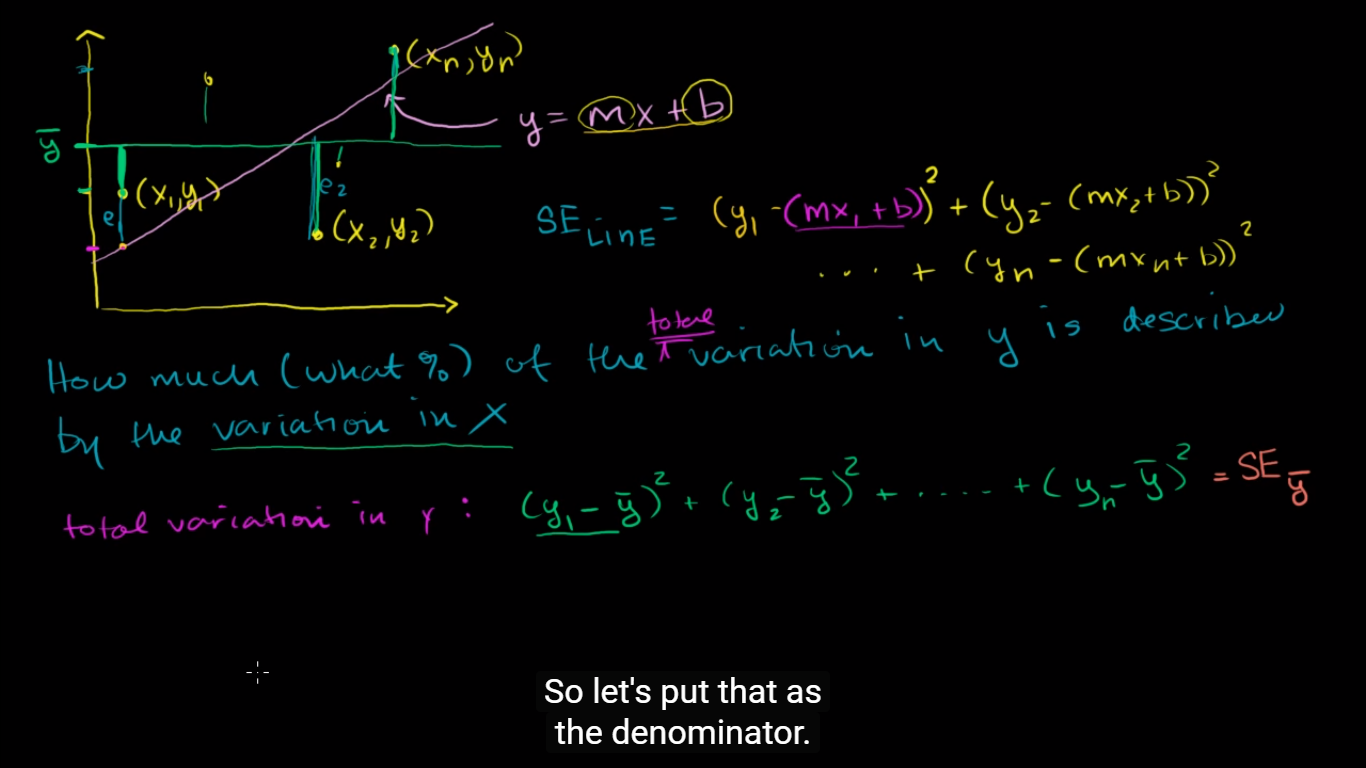 (xₙ, yₙ)
y = mx + b
ȳ
(x₁, y₁)
e₂
e
(x₂, y₂)
SE LINE = (y₁ - (mx₁ + b))² + (y₂ - (mx₂ + b))²
.... + (yₙ - (mxₙ + b))²
total
How much (what %) of the variation in y is described
by the variation in x
total variation in y : (y₁ - ȳ)² + (y₂ - ȳ)² + ..... + (yₙ - ȳ)² = SE ȳ
So let's put that as
the denominator.